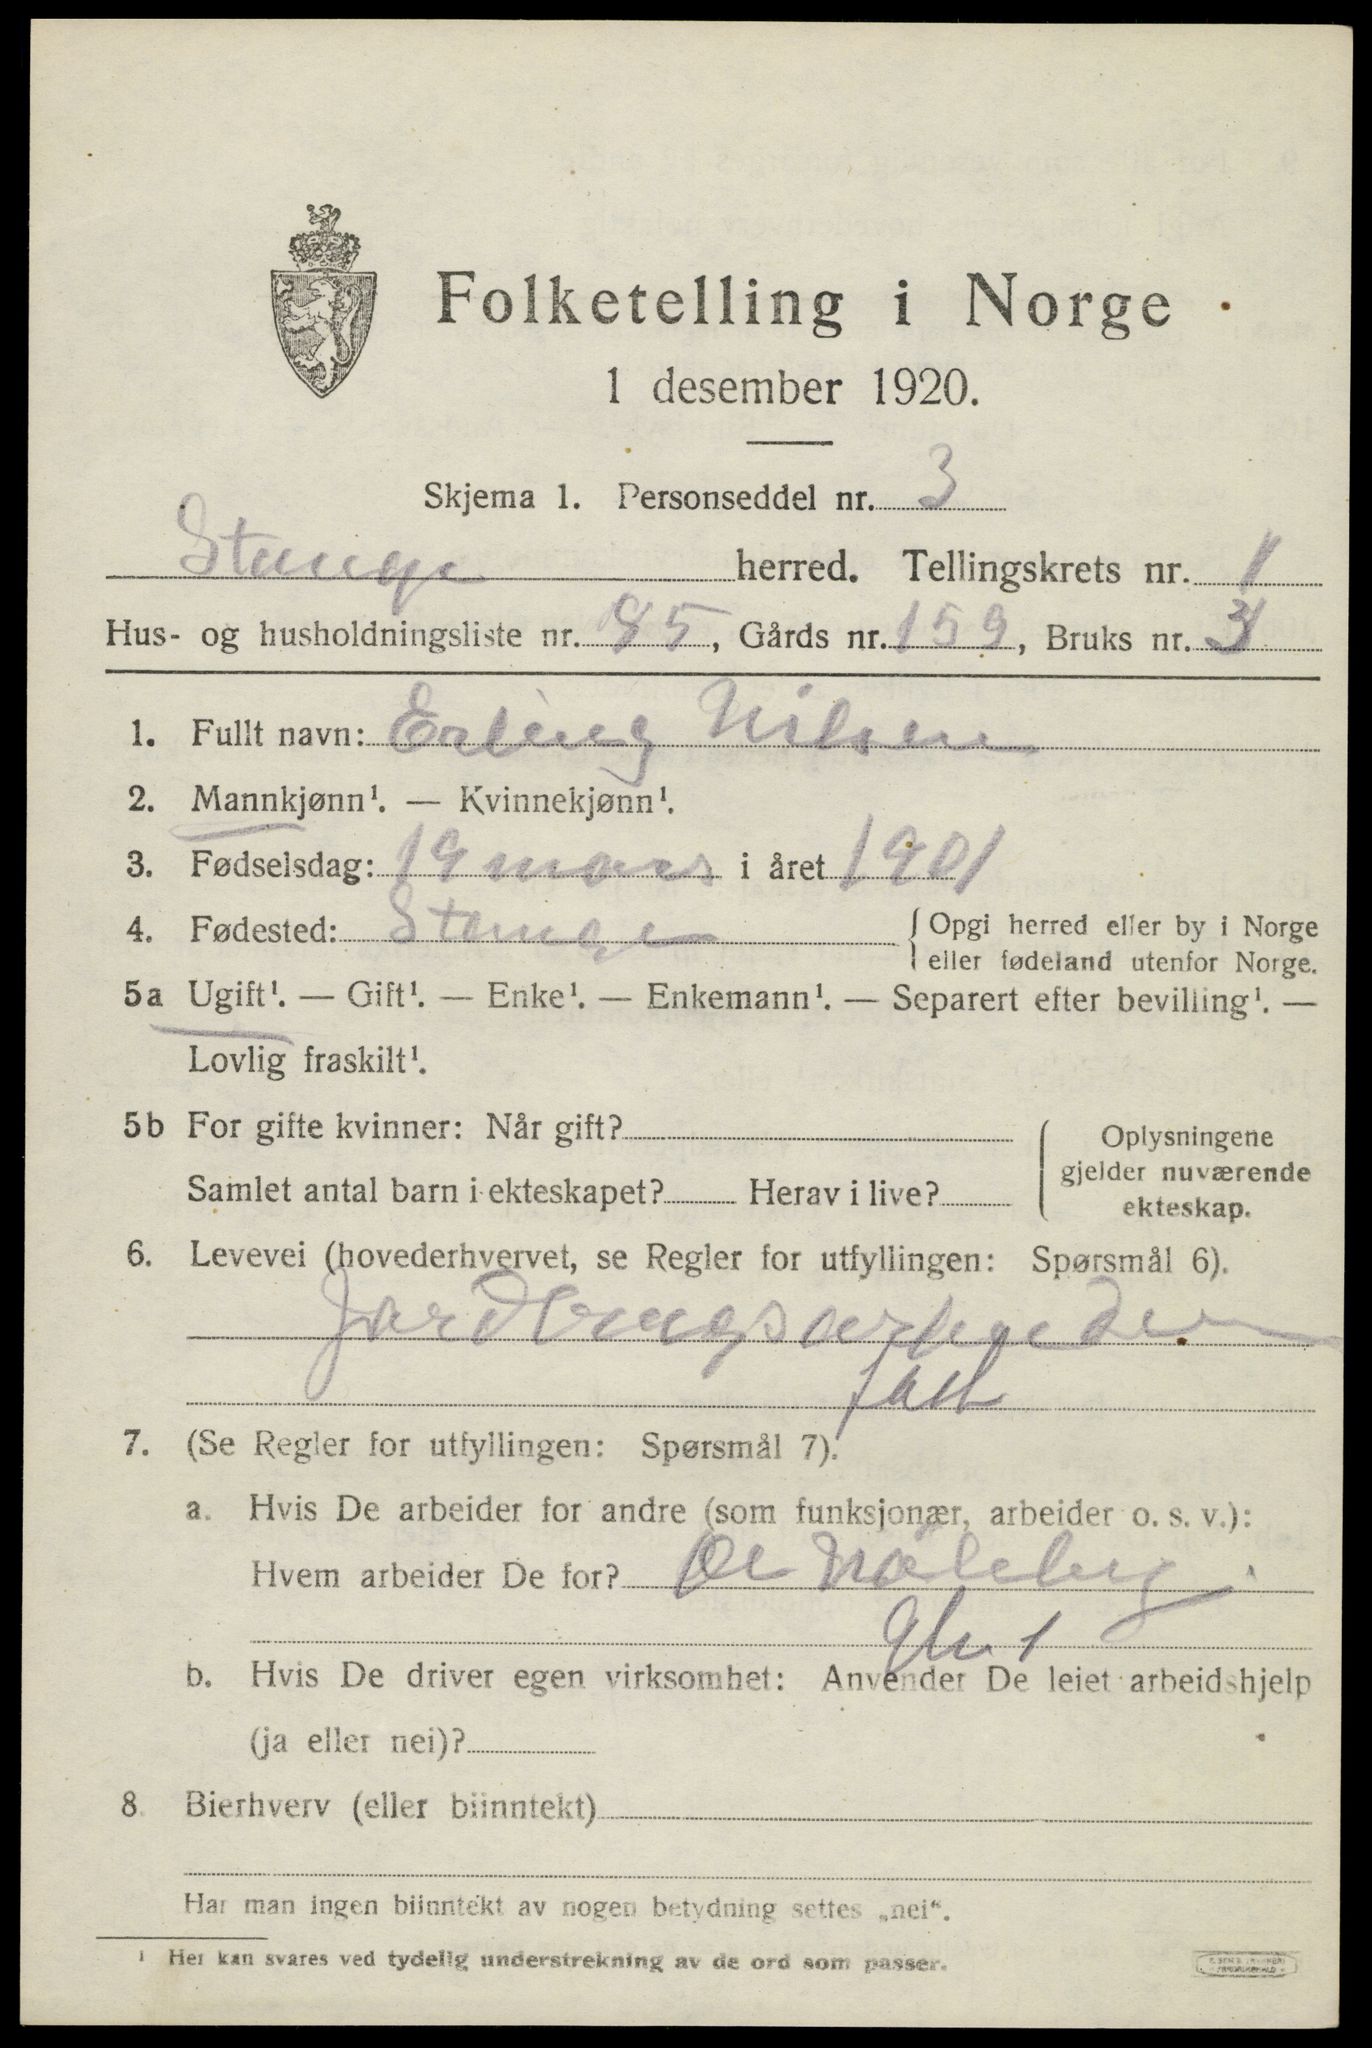 Folketelling i Norge
1 desember 1920.
Skjema 1. Personseddel nr. 3
Stange herred. Tellingskrets nr. 1
Hus- og husholdningsliste nr. 85, Gårds nr. 159, Bruks nr. 3
1. Fullt navn: Erling Nilsen
2. Mannkjønn¹. — Kvinnekjønn¹.
3. Fødselsdag: 19 mars i året 1901
4. Fødested: Stange { Opgi herred eller by i Norge
eller fødeland utenfor Norge.
5a Ugift¹. — Gift¹. — Enke¹. — Enkemann¹. — Separert efter bevilling¹. —
Lovlig fraskilt¹.
5b For gifte kvinner: Når gift? { Oplysningene
gjelder nuværende
Samlet antal barn i ekteskapet? Herav i live? ekteskap.
6. Levevei (hovederhvervet, se Regler for utfyllingen: Spørsmål 6).
Jordbrugsarbeider
fast
7. (Se Regler for utfyllingen: Spørsmål 7).
a. Hvis De arbeider for andre (som funksjonær, arbeider o. s. v.):
Hvem arbeider De for?
b. Hvis De driver egen virksomhet: Anvender De leiet arbeidshjelp
(ja eller nei)?
8. Bierhverv (eller biinntekt)
Har man ingen biinntekt av nogen betydning settes „nei“.
¹ Her kan svares ved tydelig understrekning av de ord som passer.